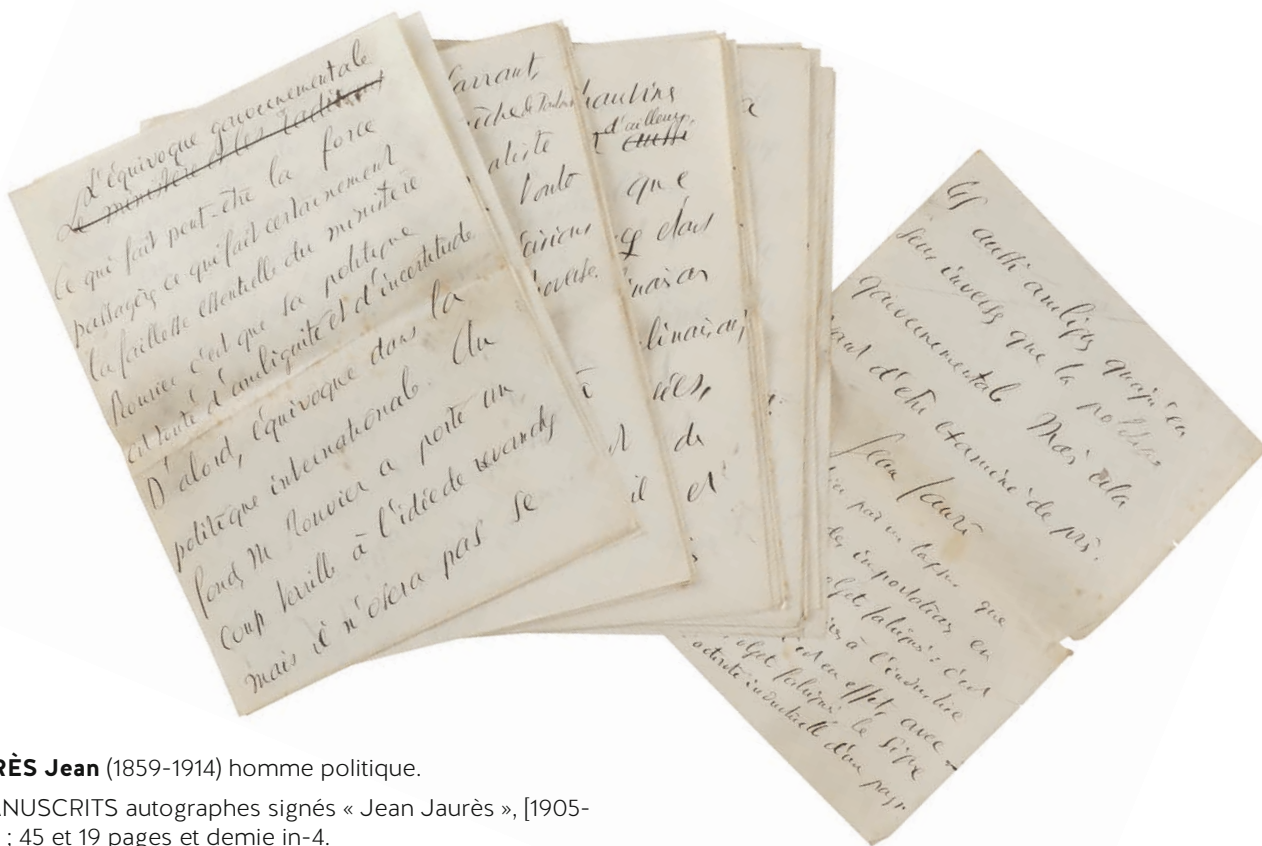 L'équivoque gouvernementale
Le ministère et les radicaux
Ce qui fait peut-être la force
passagère, ce qui fait certainement
la faillite essentielle du ministère
Rouvier c'est que sa politique
est toute d'ambiguité et d'incertitude
D'abord, équivoque dans la
politique internationale. Au
fond, M Rouvier a porté un
coup terrible à l'idée de revanche
mais il n'osera pas se
arraut,
aliste
d'ailleurs,
aussi
que
dans
inaison
linaison,
de
il et
aussi ambigus quoiqu'en
sens inverse que la politique
gouvernementale Mais cela
vaut d'être examiné de près.
Jean Jaurès
par un lapsus que
des importations en
objets fabriqués : c'est
à l'industrie
est en effet, avec
objets fabriqués le signe
activité industrielle d'un pays.
RÈS Jean (1859-1914) homme politique.
ANUSCRITS autographes signés « Jean Jaurès », [1905-
; 45 et 19 pages et demie in-4.